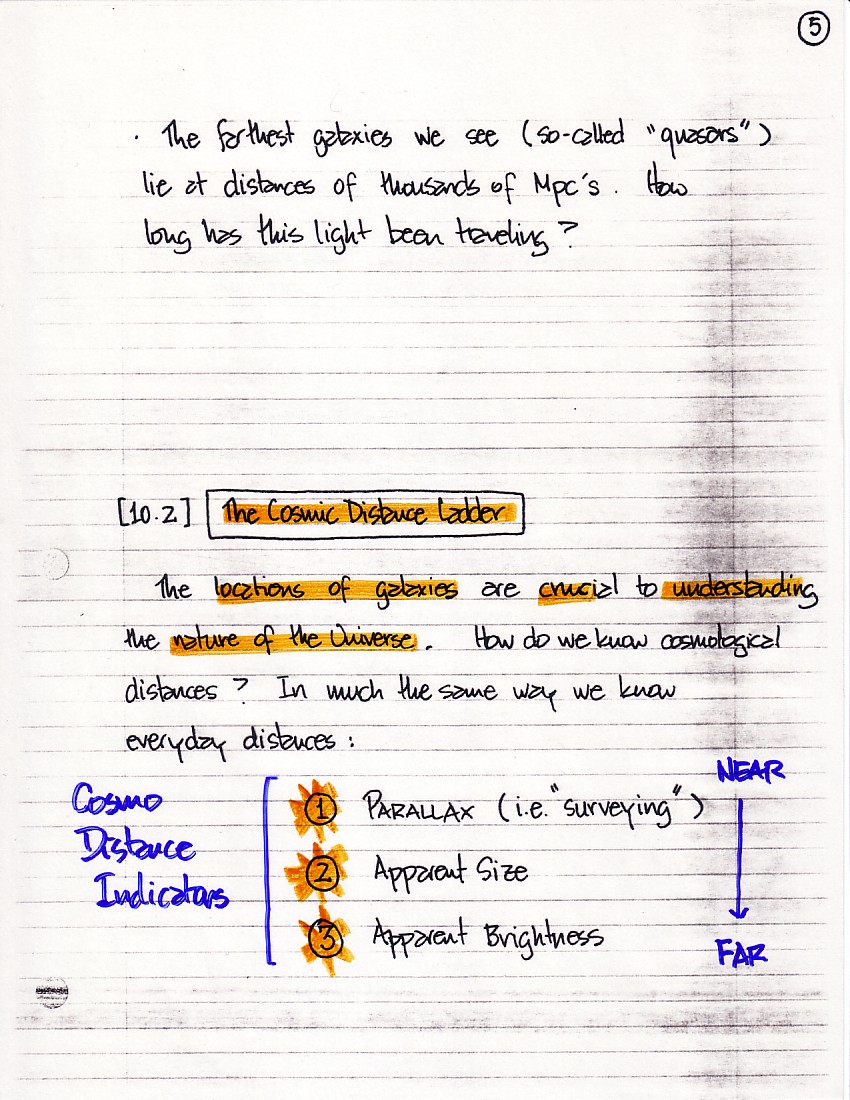 5
· The farthest galaxies we see (so-called "quasars")
lie at distances of thousands of Mpc's. How
long has this light been traveling?
[10.2] The Cosmic Distance Ladder
The locations of galaxies are crucial to understanding
the nature of the Universe. How do we know cosmological
distances? In much the same way we know
everyday distances:
Cosmo
Distance
Indicators
1 PARALLAX (i.e. "surveying")
2 Apparent Size
3 Apparent Brightness
NEAR
FAR